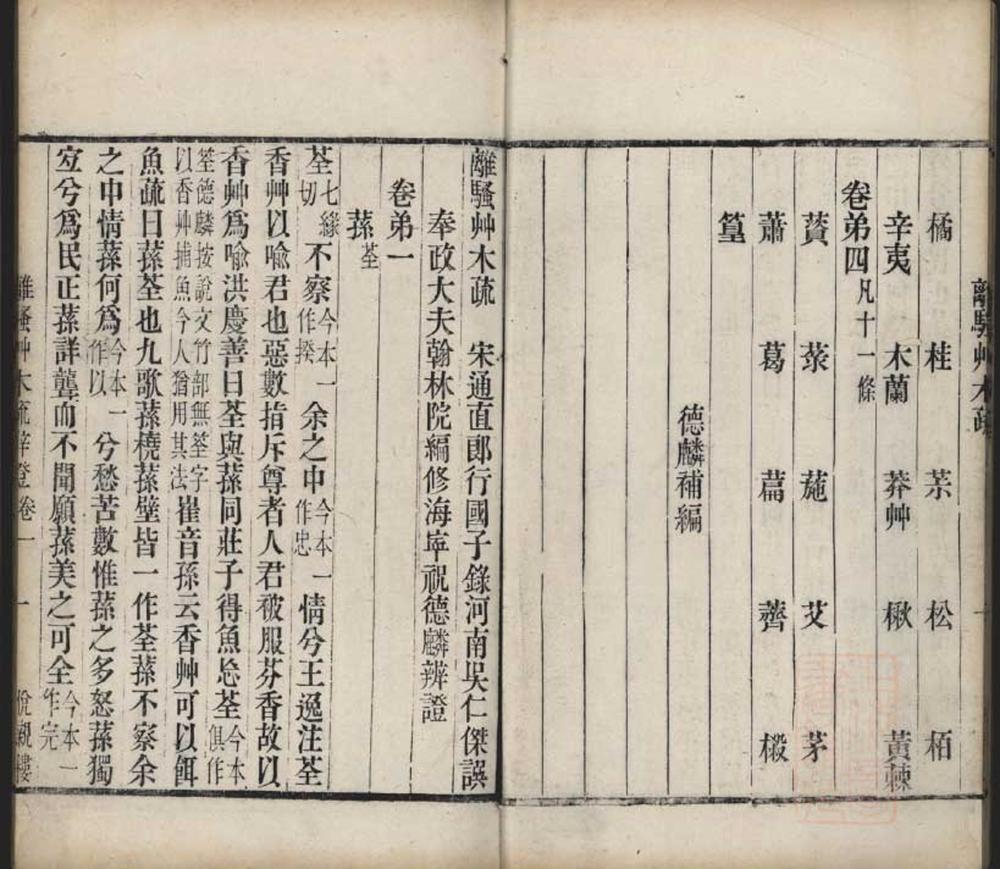 離騷艸木疏
橘 桂 茶 松 栢
辛夷 木蘭 莽艸 楸 黃棘
卷弟四 凡十一條
薋 菉 葹 艾 茅
蕭 葛 萹 薺 樧
篁
德麟補編
離騷艸木疏 宋通直郎行國子錄河南吳仁傑譔
奉政大夫翰林院編修海寧祝德麟辨證
卷弟一
蓀荃
荃七緣切不察今本一作揆余之中今本一作忠情兮王逸注荃
香艸以喻君也惡數指斥尊者人君被服芬香故以
香艸爲喻洪慶善曰荃與蓀同莊子得魚忘荃今本俱作
筌德麟按說文竹部無筌字以香艸捕魚今人猶用其法崔音孫云香艸可以餌
魚疏曰蓀荃也九歌蓀橈蓀壁皆一作荃蓀不察余
之中情蓀何爲今本一作以兮愁苦數惟蓀之多怒蓀獨
宐兮爲民正蓀詳聾而不聞願蓀美之可全今本一作完
離騷艸木疏辛證卷一 一 悅親樓